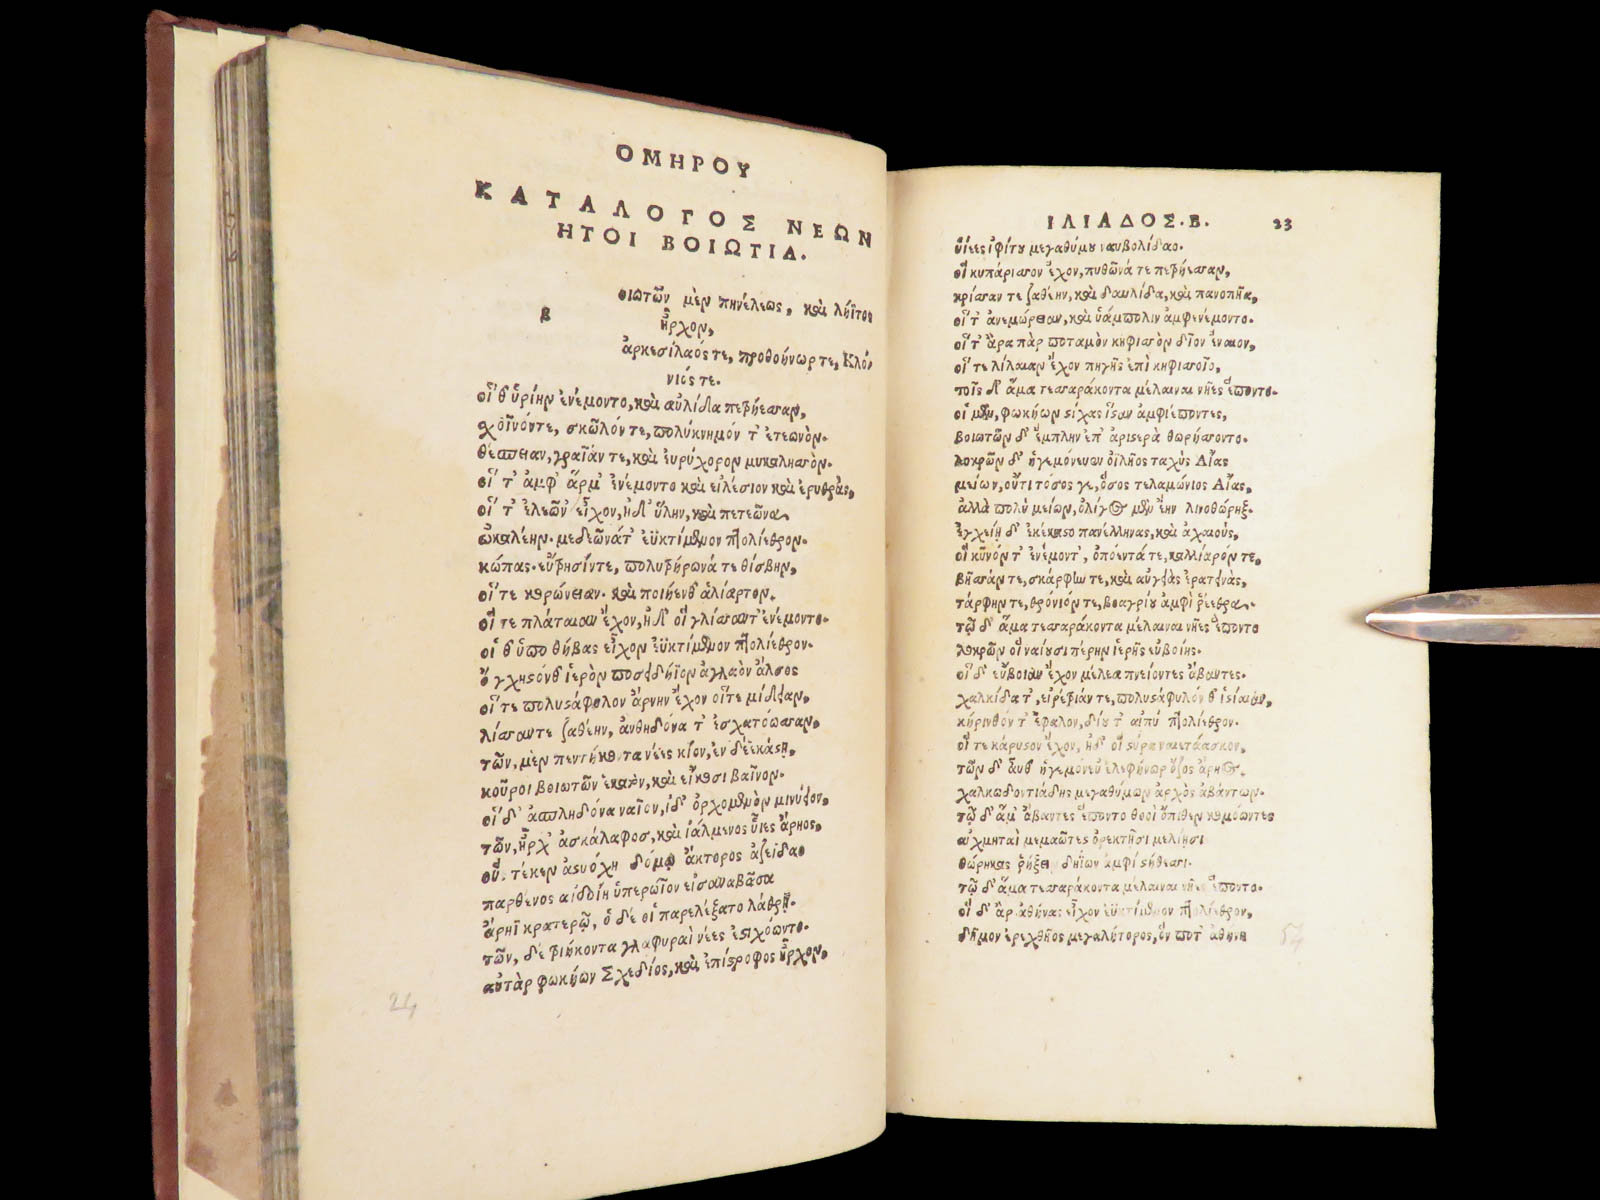 ΟΜΗΡΟΥ
ΚΑΤΑΛΟΓΟΣ ΝΕΩΝ
ΗΤΟΙ ΒΟΙΩΤΙΑ.
β
οιωτῶν μὲν πηνέλεως, καὶ λήϊτος
ἦρχον,
ἀρκεσίλαός τε, προθοήνωρ τε, Κλό,
νιός τε.
οἵ θ' ὑρίην ἐνέμοντο, καὶ αὐλίδα πετρήεσσαν,
χοῖνόν τε, σκῶλόν τε, πολύκνημόν τ' ἐτεωνὸν.
θέσπειαν, γραῖάν τε, καὶ εὐρύχορον μυκαλησσὸν.
οἵ τ' ἀμφ' ἅρμ' ἐνέμοντο καὶ εἰλέσιον καὶ ἐρυθρὰς,
οἵ τ' ἐλεῶν' εἶχον, ἠδ' ὕλην, καὶ πετεῶνα
ὠκαλέην. μεδεῶνά τ' ἐϋκτίμενον πτολίεθρον.
κώπας. εὔτρησίν τε, πολυτρήρωνά τε θίσβην,
οἵ τε κορώνειαν. καὶ ποιήενθ' ἁλίαρτον.
οἵ τε πλάταιαν ἔχον, ἠδ' οἳ γλίσσαντ' ἐνέμοντο.
οἵ θ' ὑπο θήβας εἶχον ἐϋκτίμενον πτολίεθρον.
ὄγχηστόνθ' ἱερὸν ποσειδήϊον ἀγλαὸν ἄλσος
οἵ τε πολυστάφυλον ἄρνην ἔχον οἵτε μίδειαν,
νίσσαν τε ζαθέην, ἀνθηδόνα τ' ἐσχατόωσσαν,
τῶν, μὲν πεντήκοντα νέες κίον, ἐν δὲ ἑκάστῃ,
κοῦροι βοιωτῶν ἑκατὸν, καὶ εἴκοσι βαῖνον.
οἵ δ' ἀσπληδόνα ναῖον, ἰδ' ὀρχομενὸν μινύειον,
τῶν, ἦρχ' ἀσκάλαφος, καὶ ἰάλμενος υἷες ἄρηος,
οὓς τέκεν ἀστυόχη δόμῳ ἄκτορος ἀζείδαο
παρθένος αἰδοίη ὑπερώϊον εἰσαναβᾶσα
ἄρηϊ κρατερῷ, ὁ δέ οἱ παρελέξατο λάθρῃ.
τῶν, δὲ τριήκοντα γλαφυραὶ νέες ἐστιχόωντο.
αὐτὰρ φωκήων Σχεδίος, καὶ ἐπίστροφος ἦρχον,
24
ΙΛΙΑΔΟΣ. Β. 23
ὑίεες ἰφίτου μεγαθύμου ναυβολίδαο.
οἳ κυπάρισσον ἔχον, πυθῶνά τε πετρήεσσαν,
κρίσσαν τε ζαθέην, καὶ δαυλίδα, καὶ πανοπῆα,
οἵ τ' ἀνεμώρειαν, καὶ ὑάμπολιν ἀμφενέμοντο.
οἵ τ' ἄρα πὰρ ποταμὸν κηφισσὸν δῖον ἔναιον,
οἵ τε λίλαιαν ἔχον πηγῇς ἐπὶ κηφισσοῖο,
τοῖς δ' ἅμα τεσσαράκοντα μέλαιναι νῆες ἕποντο.
οἱ μὲν, φωκήων στίχας ἵσαν ἀμφιέποντες,
βοιωτῶν δ' ἔμπλην ἐπ' ἀριστερὰ θωρήσσοντο.
λοκρῶν δ' ἡγεμόνευεν ὀϊλῆος ταχὺς Αἴας
μείων, οὔτι τόσος γε, ὅσος τελαμώνιος Αἴας,
ἀλλὰ πολὺ μείων, ὀλίγος μὲν ἔην λινοθώρηξ.
ἐγχείῃ δ' ἐκέκαστο πανέλληνας, καὶ ἀχαιούς,
οἳ κῦνόν τ' ἐνέμοντ', ὀπόεντά τε, καλλίαρόν τε,
βῆσσάν τε, σκάρφην τε, καὶ αὐγειὰς ἐρατεινὰς,
τάρφην τε, θρόνιόν τε, βοαγρίου ἀμφὶ ῥέεθρα.
τῷ δ' ἅμα τεσσαράκοντα μέλαιναι νῆες ἕποντο
λοκρῶν οἳ ναίουσι πέρην ἱερῆς εὐβοίης.
οἳ δ' εὔβοιαν ἔχον μένεα πνείοντες ἄβαντες.
χαλκίδα τ', εἰρέτριάν τε, πολυστάφυλόν θ' ἱστίαιαν,
κήρινθόν τ' ἔφαλον, δίου τ' αἰπύ πτολίεθρον.
οἵ τε κάρυστον ἔχον, ἠδ' οἳ στύρα ναιετάασκον,
τῶν δ' αὖθ' ἡγεμόνευ' ἐλεφήνωρ ὄζος ἄρηος.
χαλκωδοντιάδης μεγαθύμων ἀρχὸς ἀβάντων.
τῷ δ' ἅμ' ἄβαντες ἕποντο θοοὶ ὄπιθεν κομόωντες
αἰχμηταὶ μεμαῶτες ὀρεκτῇσι μελίῃσι
θώρηκας ῥήξειν δηΐων ἀμφὶ στήθεσσι.
τῷ δ' ἅμα τεσσαράκοντα μέλαιναι νῆες ἕποντο.
οἳ δ' ἄρ ἀθήνας εἶχον ἐϋκτίμενον πτολίεθρον,
δῆμον ἐρεχθῆος μεγαλήτορος, ὅν ποτ' ἀθήνη